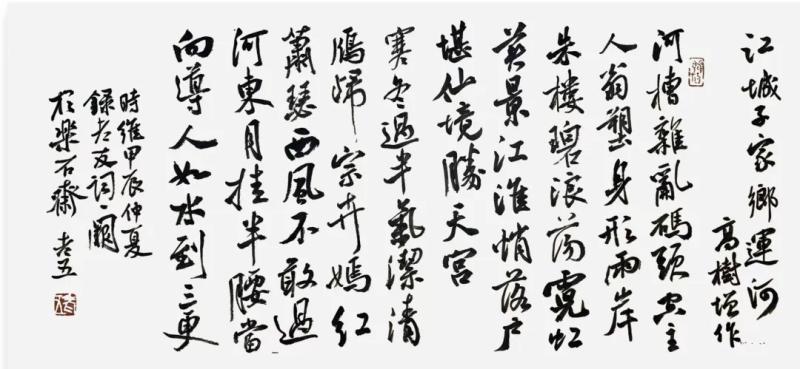 江城子家鄉運河
高樹增作
河槽雜亂碼頭空主
人翁塑身形兩岸
朱樓碧浪蕩霓虹
美景江淮悄落户
堪仙境勝天宫
寒冬過半氣潔清
鴈歸宗卉嫣紅
蕭瑟西風不敢過
河東月挂半腰當
向導人如水到三更
時維甲辰仲夏
録老友詞一闋
於樂石齋 老五